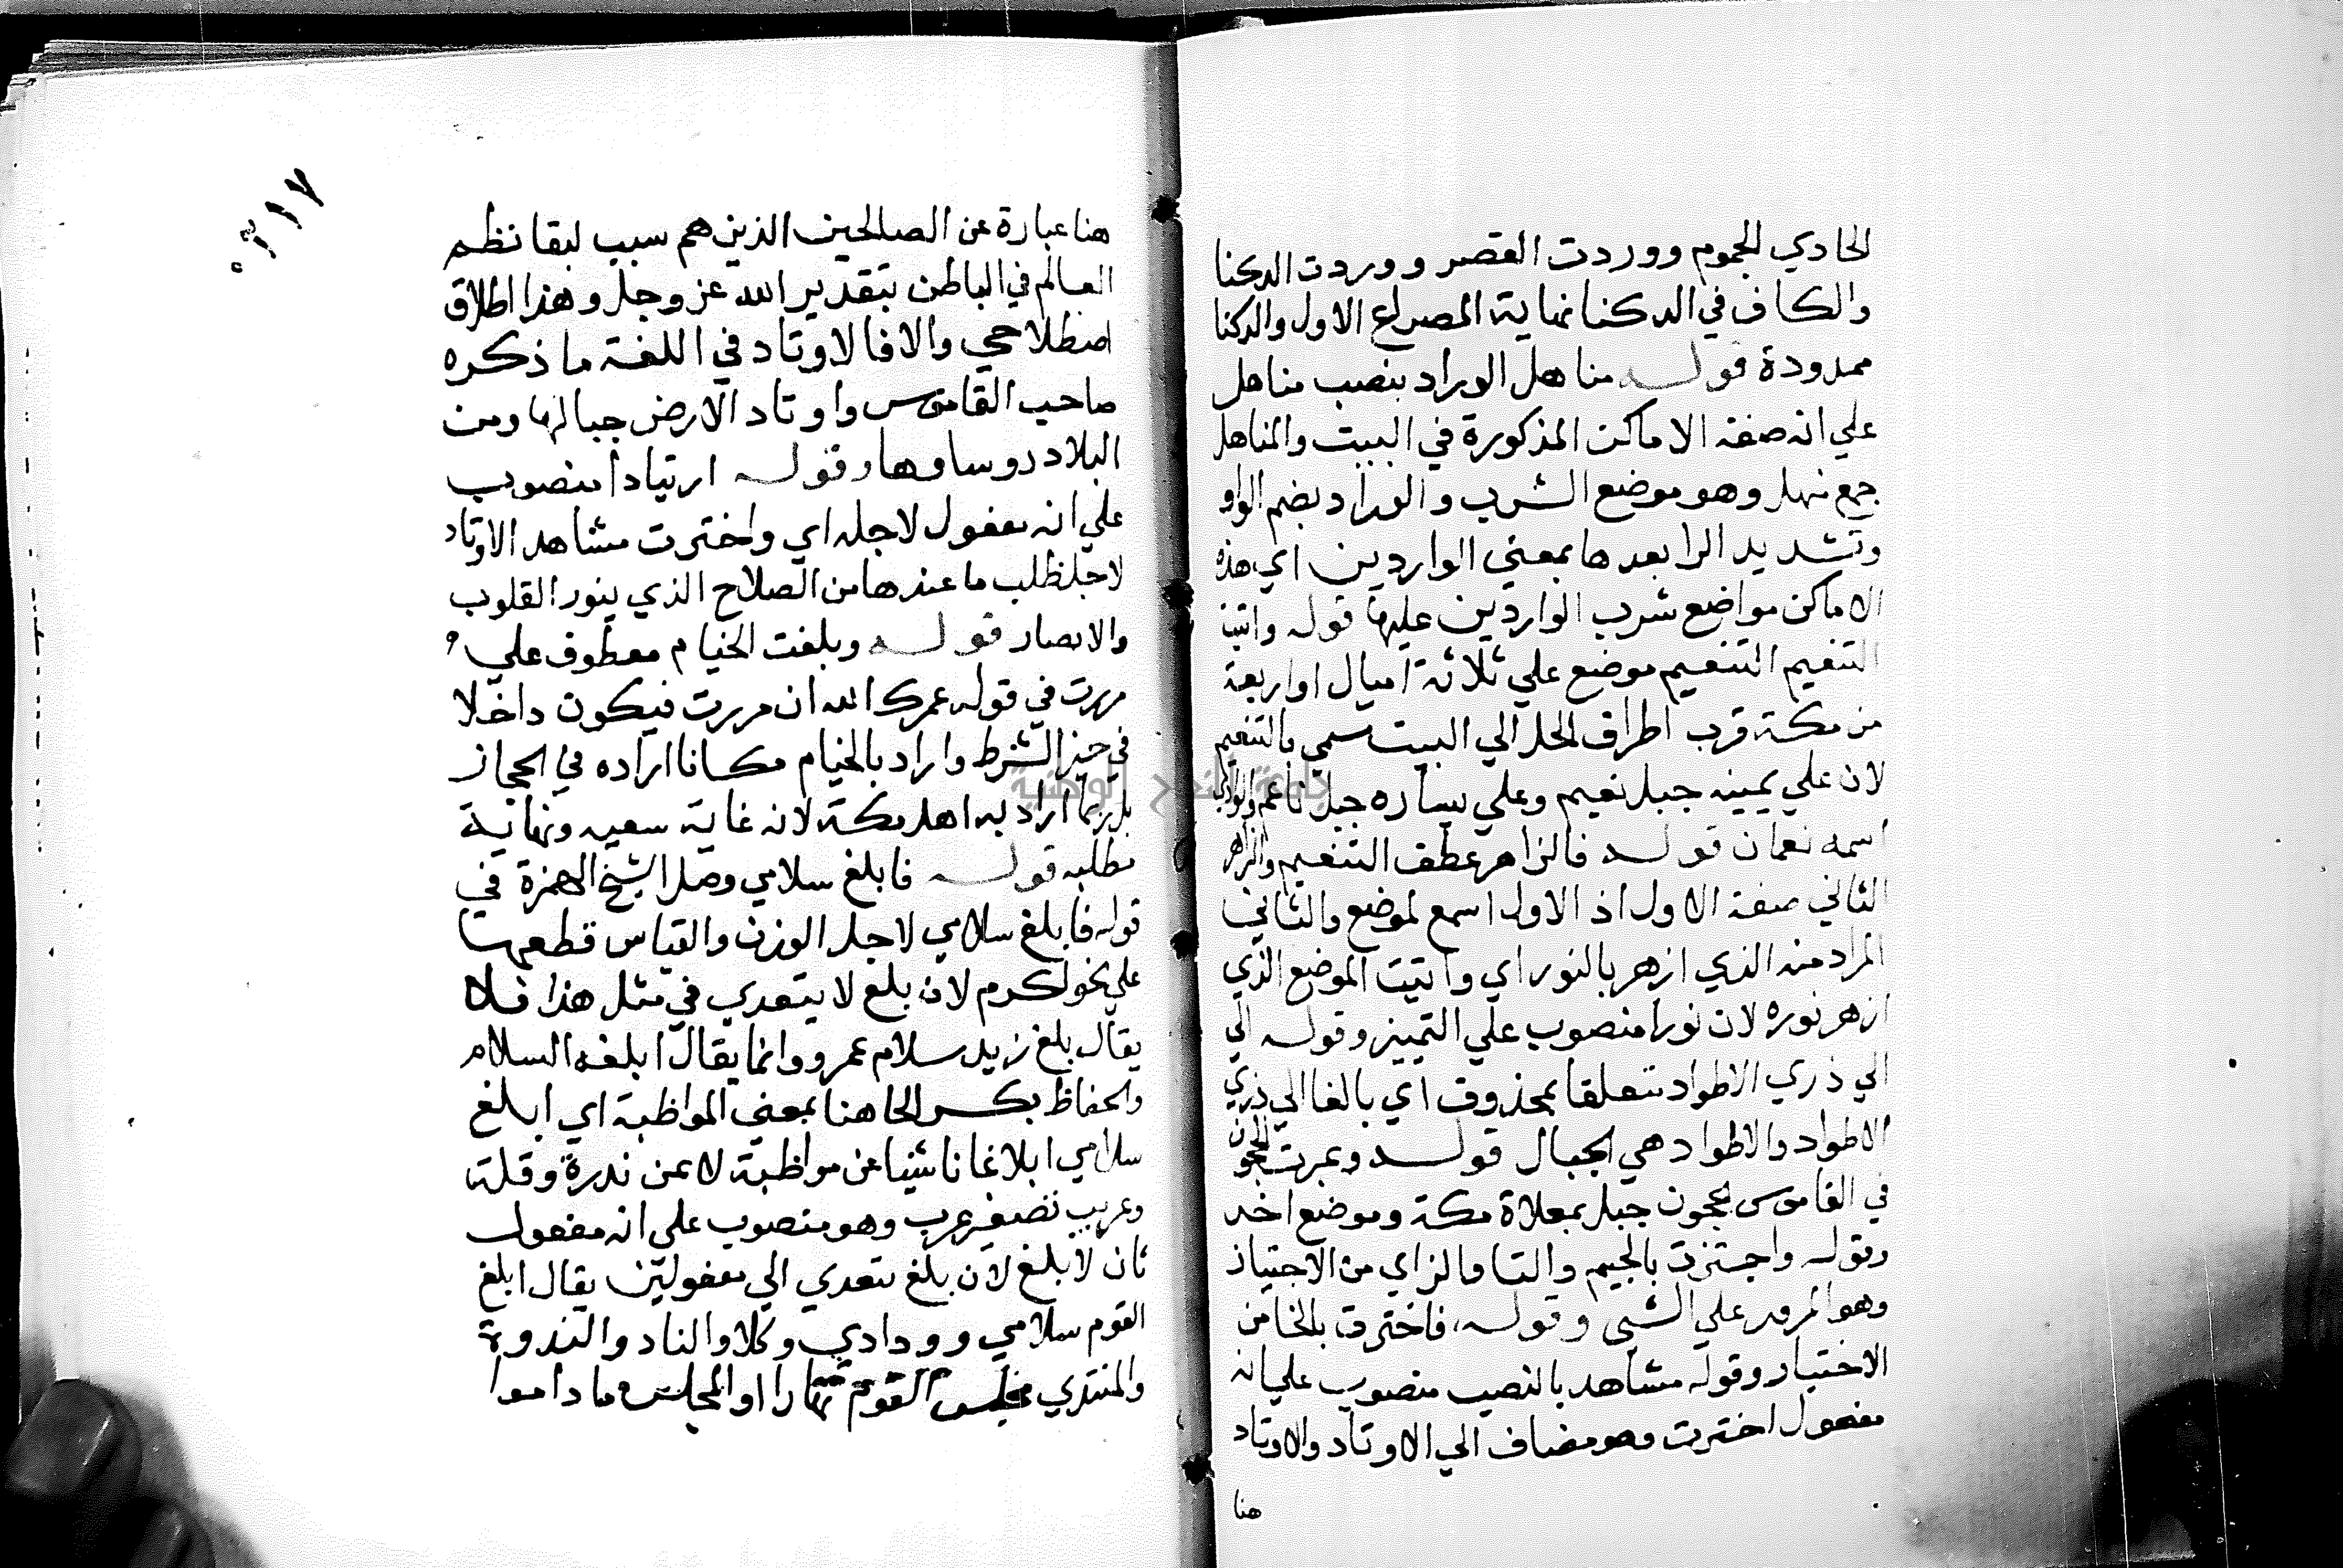 الحادي للجموم ووردت القصر ووردت الدكنا
والكاف في الدكنا نهاية المصراع الاول والدكنا
ممدودة قوله مناهل الوراد بنصب مناهل
علي انه صفة الاماكن المذكورة في البيت والمناهل
جمع منهل وهو موضع الشرب والوراد بضم الواو
وتشديد الرا بعدها بمعني الواردين اي هذه
الاماكن مواضع شرب الواردين عليها قوله واتيت
التنعيم التنعيم موضع علي ثلاثة اميال او اربعة
من مكة قرب اطراف الحل الي البيت سمي بالتنعيم
لان علي يمينه جبل نعيم وعلي يساره جبل ناعم والوادي
اسمه نعمان قوله فالزاهر عطف التنعيم والزاهر
الثاني صفة الاول اذ الاول اسم لموضع والثاني
المراد منه الذي ازهر بالنور اي واتيت الموضع الذي
ازهر نوره لان نورا منصوب علي التمييز وقوله الي
الي ذري الاطواد متعلقا بمحذوف اي بالغا الي ذري
الاطواد والاطواد هي الجبال قوله وعبرت الحجون
في القاموس الحجون جبل بمعلاة مكة وموضع اخر
وقوله واجتزت بالجيم والتا والزاي من الاجتياز
وهو المرور علي الشي وقوله فاخترت بالخا من
الاختيار وقوله مشاهد بالنصب منصوب علي انه
مفعول اخترت وهو مضاف الي الاوتاد والاوتاد
هنا
٣١٧
هنا عبارة عن الصالحين الذين هم سبب لبقا نظم
العالم في الباطن بتقدير الله عز وجل وهذا اطلاق
اصطلاحي والا فالاوتاد في اللغة ما ذكره
صاحب القاموس واوتاد الارض جبالها ومن
البلاد روساوها وقوله ارتيادا منصوب
علي انه مفعول لاجله اي واخترت مشاهد الاوتاد
لاجل طلب ما عندها من الصلاح الذي ينور القلوب
والابصار قوله وبلغت الخيام معطوف علي
مررت في قوله عمرك الله ان مررت فيكون داخلا
في حيز الشرط واراد بالخيام مكانا اراده في الحجاز
بل ربما اراد به اهل مكة لانه غاية سعيه ونهاية
مطلبه قوله فابلغ سلامي وصل الشيخ الهمزة في
قوله فابلغ سلامي لاجل الوزن والقياس قطعها
علي نحو اكرم لان بلغ لا يتعدي في مثل هذا فلا
يقال بلغ زيد سلام عمرو وانما يقال ابلغه السلام
والحفاظ بكسر الحا هنا بمعني المواظبة اي ابلغ
سلامي ابلاغا ناشيا عن مواظبة لا عن ندرة وقلة
وعريب تصغير عرب وهو منصوب علي انه مفعول
ثان لابلغ لان بلغ يتعدي الي مفعولين يقال ابلغ
القوم سلامي وودادي وكلا والناد والندوة
والمنتدي مجلس القوم نهارا او المجلس ما داموا